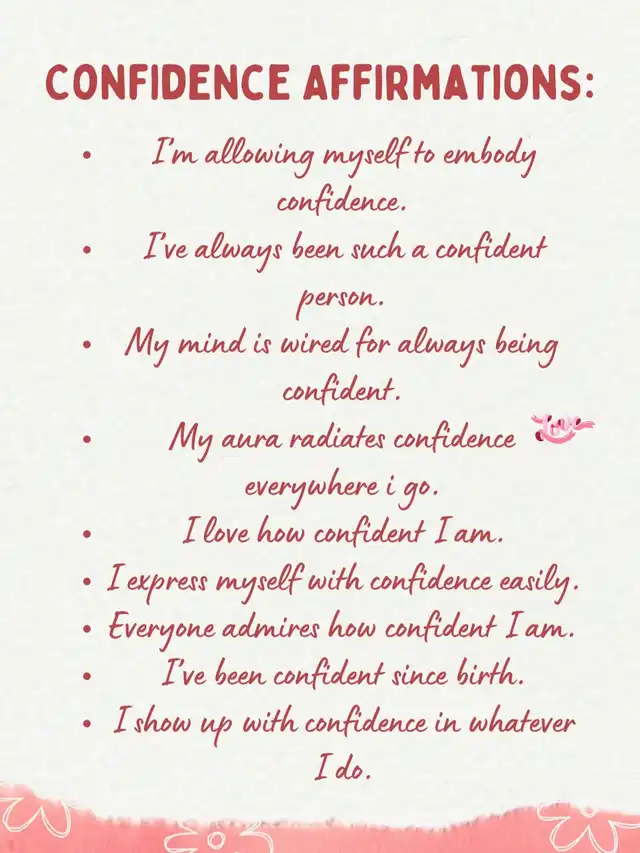 CONFIDENCE AFFIRMATIONS:
• I'm allowing myself to embody
confidence.
• I've always been such a confident
person.
• My mind is wired for always being
confident.
• My aura radiates confidence
Love
everywhere i go.
• I love how confident I am.
• I express myself with confidence easily.
• Everyone admires how confident I am.
• I've been confident since birth.
• I show up with confidence in whatever
I do.